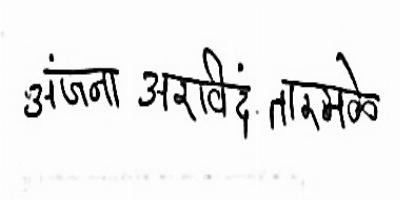 अंजना अरविदं तारमळे